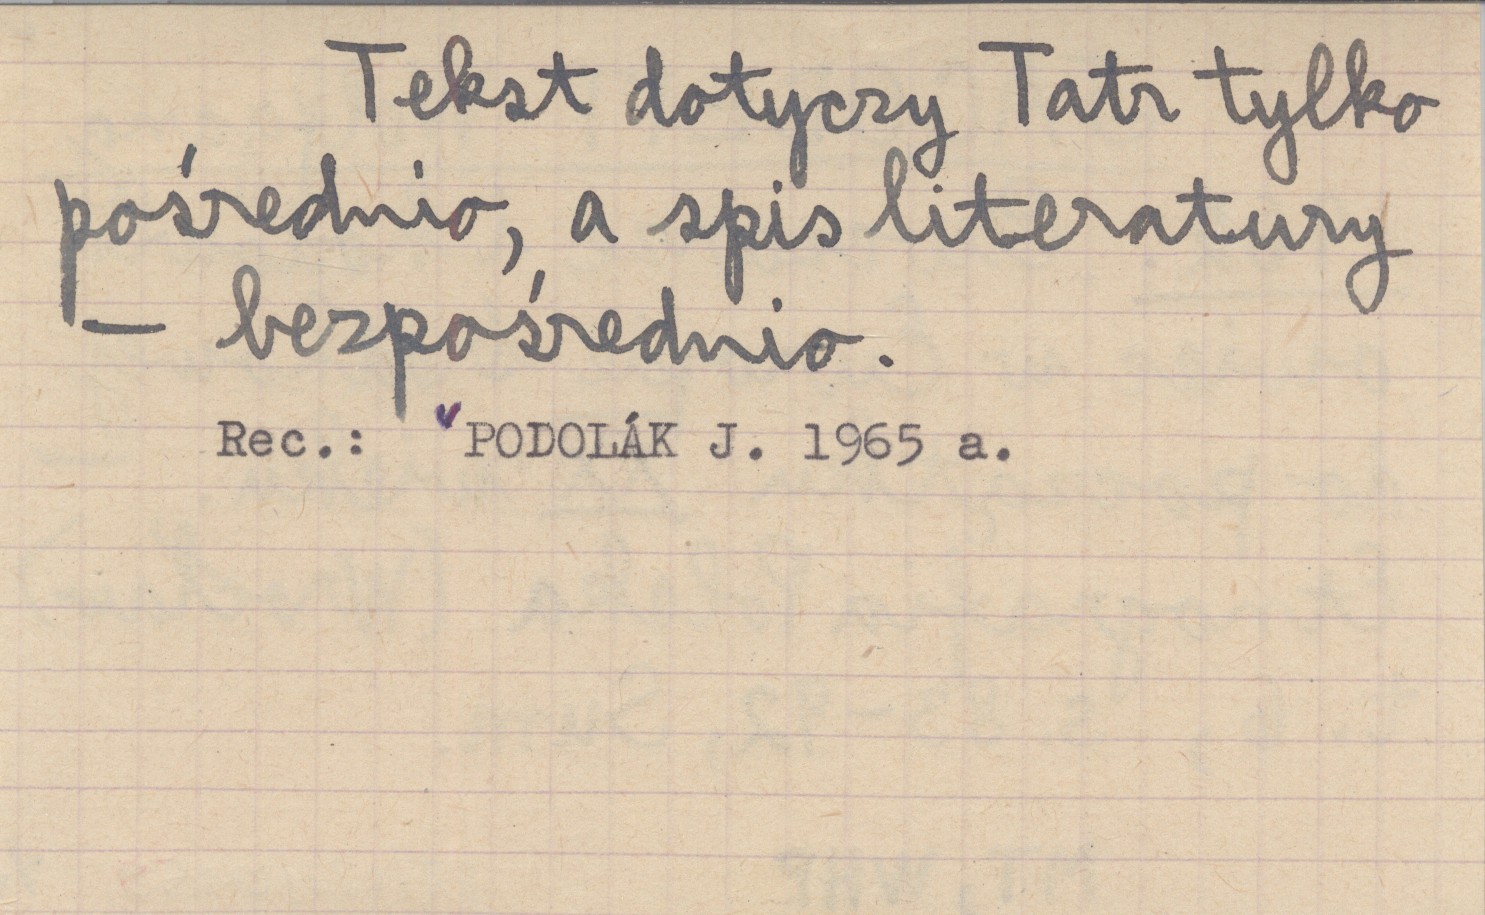 Tekst dotyczy Tatr tylko
pośrednio, a spis literatury
– bezpośrednio.
Rec.: PODOLÁK J. 1965 a.